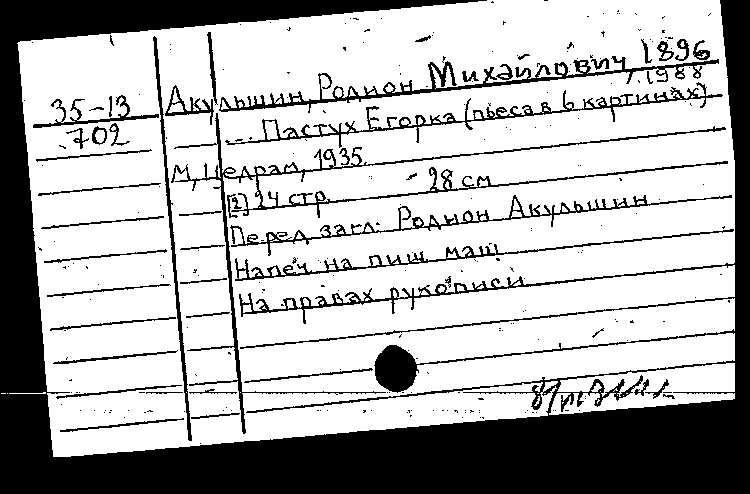 Акульшин, Родион Михайлович 1896
1.1988
35-13
702
... Пастух Егорка (пьеса в 6 картинах)
М, Цедрам, 1935.
[2] 24 стр. 28 см
Перед загл: Родион Акульшин
Напеч на пиш маш
На правах рукописи